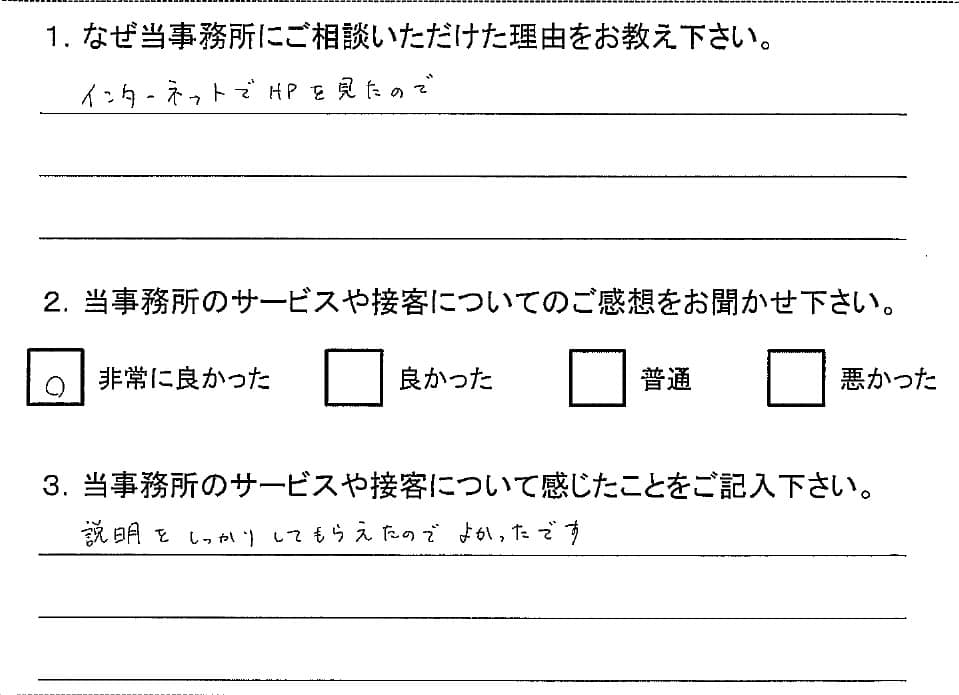 1. なぜ当事務所にご相談いただけた理由をお教え下さい。
インターネットでHPを見たので
2. 当事務所のサービスや接客についてのご感想をお聞かせ下さい。
○ 非常に良かった 良かった 普通 悪かった
3. 当事務所のサービスや接客について感じたことをご記入下さい。
説明をしっかりしてもらえたのでよかったです